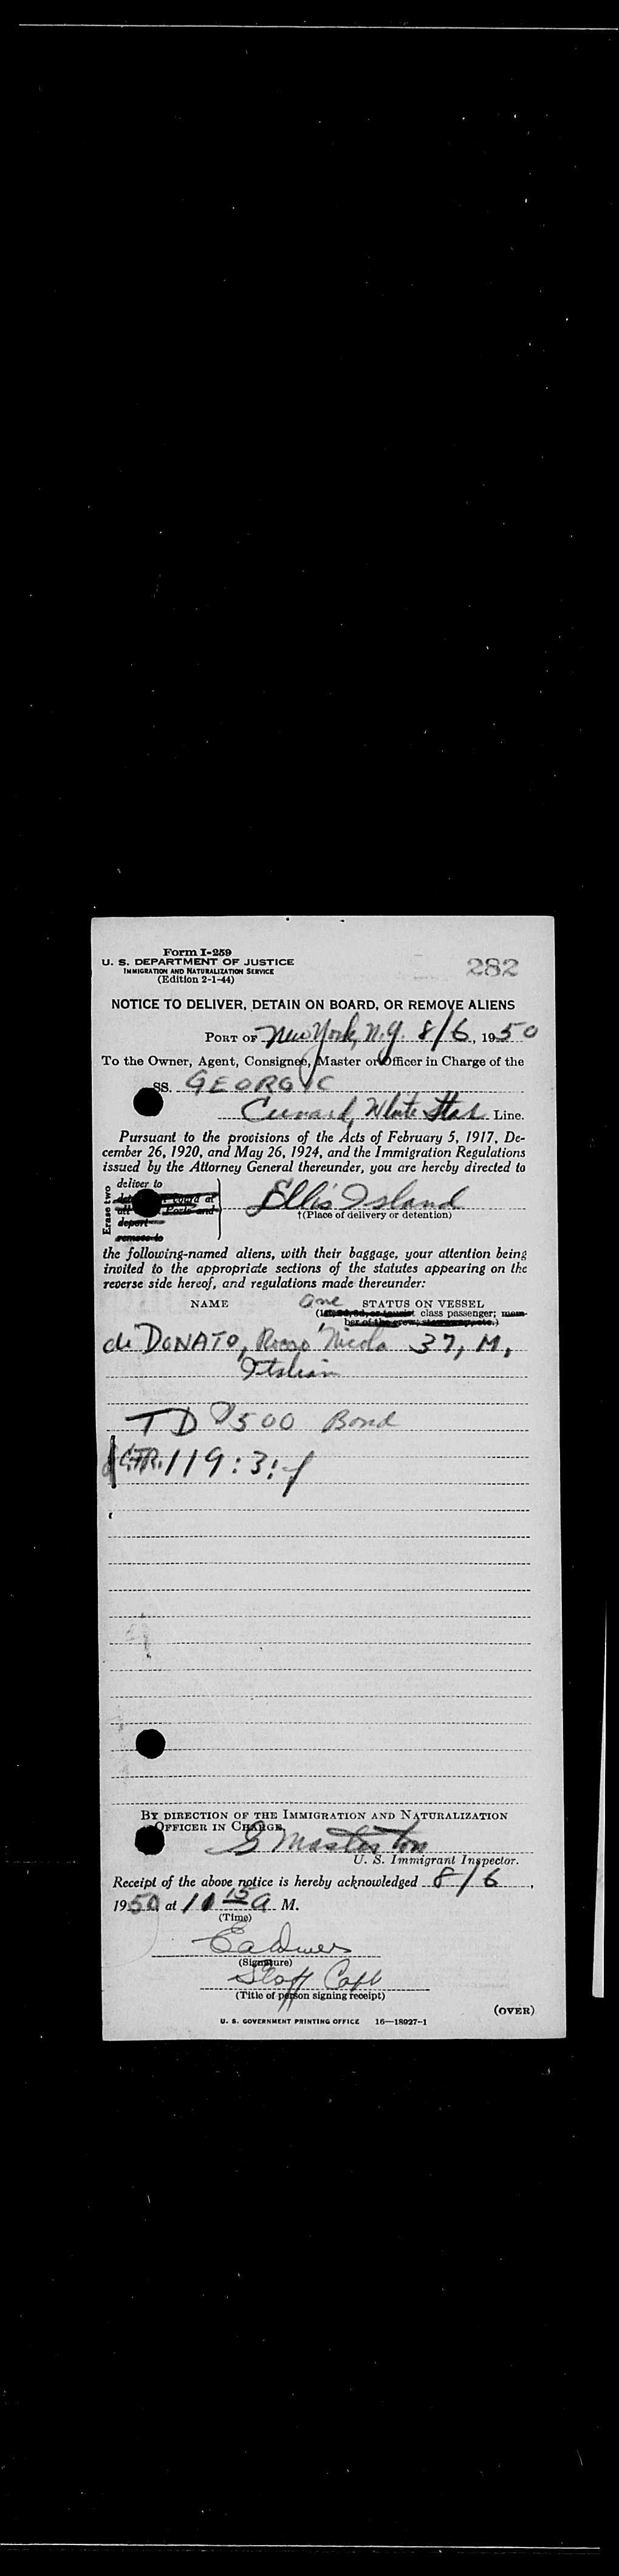 Form I-259
U. S. DEPARTMENT OF JUSTICE
IMMIGRATION AND NATURALIZATION SERVICE
(Edition 2-1-44)
282
NOTICE TO DELIVER, DETAIN ON BOARD, OR REMOVE ALIENS
PORT OF New York, N.Y. 8/6, 1950
To the Owner, Agent, Consignee, Master or Officer in Charge of the
SS. GEORGIC
Cunard, White Star Line.
Pursuant to the provisions of the Acts of February 5, 1917, De-
cember 26, 1920, and May 26, 1924, and the Immigration Regulations
issued by the Attorney General thereunder, you are hereby directed to
Erase two
deliver to
depart
remove to
Ellis Island
†(Place of delivery or detention)
the following-named aliens, with their baggage, your attention being
invited to the appropriate sections of the statutes appearing on the
reverse side hereof, and regulations made thereunder:
NAME One STATUS ON VESSEL
class passenger; mem-
di DONATO, Rocco Nicola 37, M,
Italian
TD $500 Bond
119:3:
BY DIRECTION OF THE IMMIGRATION AND NATURALIZATION
OFFICER IN CHARGE,
G Masterton
U. S. Immigrant Inspector.
Receipt of the above notice is hereby acknowledged 8/6,
1950 at A M.
(Time)
(Signature)
Staff Capt
(Title of person signing receipt)
(OVER)
U. S. GOVERNMENT PRINTING OFFICE 16—18927-1